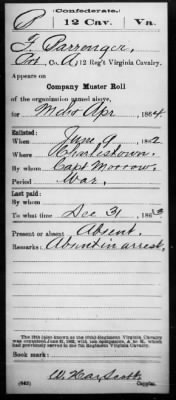 (Confederate.)
P 12 Cav. Va.
F. Parronger,
Pvt, Co. A, 12 Reg't Virginia Cavalry.
Appears on
Company Muster Roll
of the organization named above,
for Mch & Apr, 1864.
Enlisted:
When June 9, 1862
Where Charlestown.
By whom Capt Morrow.
Period War.
Last paid:
By whom
To what time Dec 31, 1863
Present or absent Absent.
Remarks: Absent in arrest.
Book mark:
W. Hay Scott
(642) Copyist.